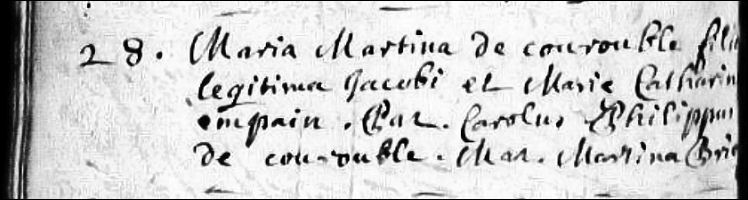 28. Maria Martina de courouble fili
legitima Jacobi et Marie Catharin
empain. Pat. Carolus Philippus
de courouble. Mat. Martina Brie